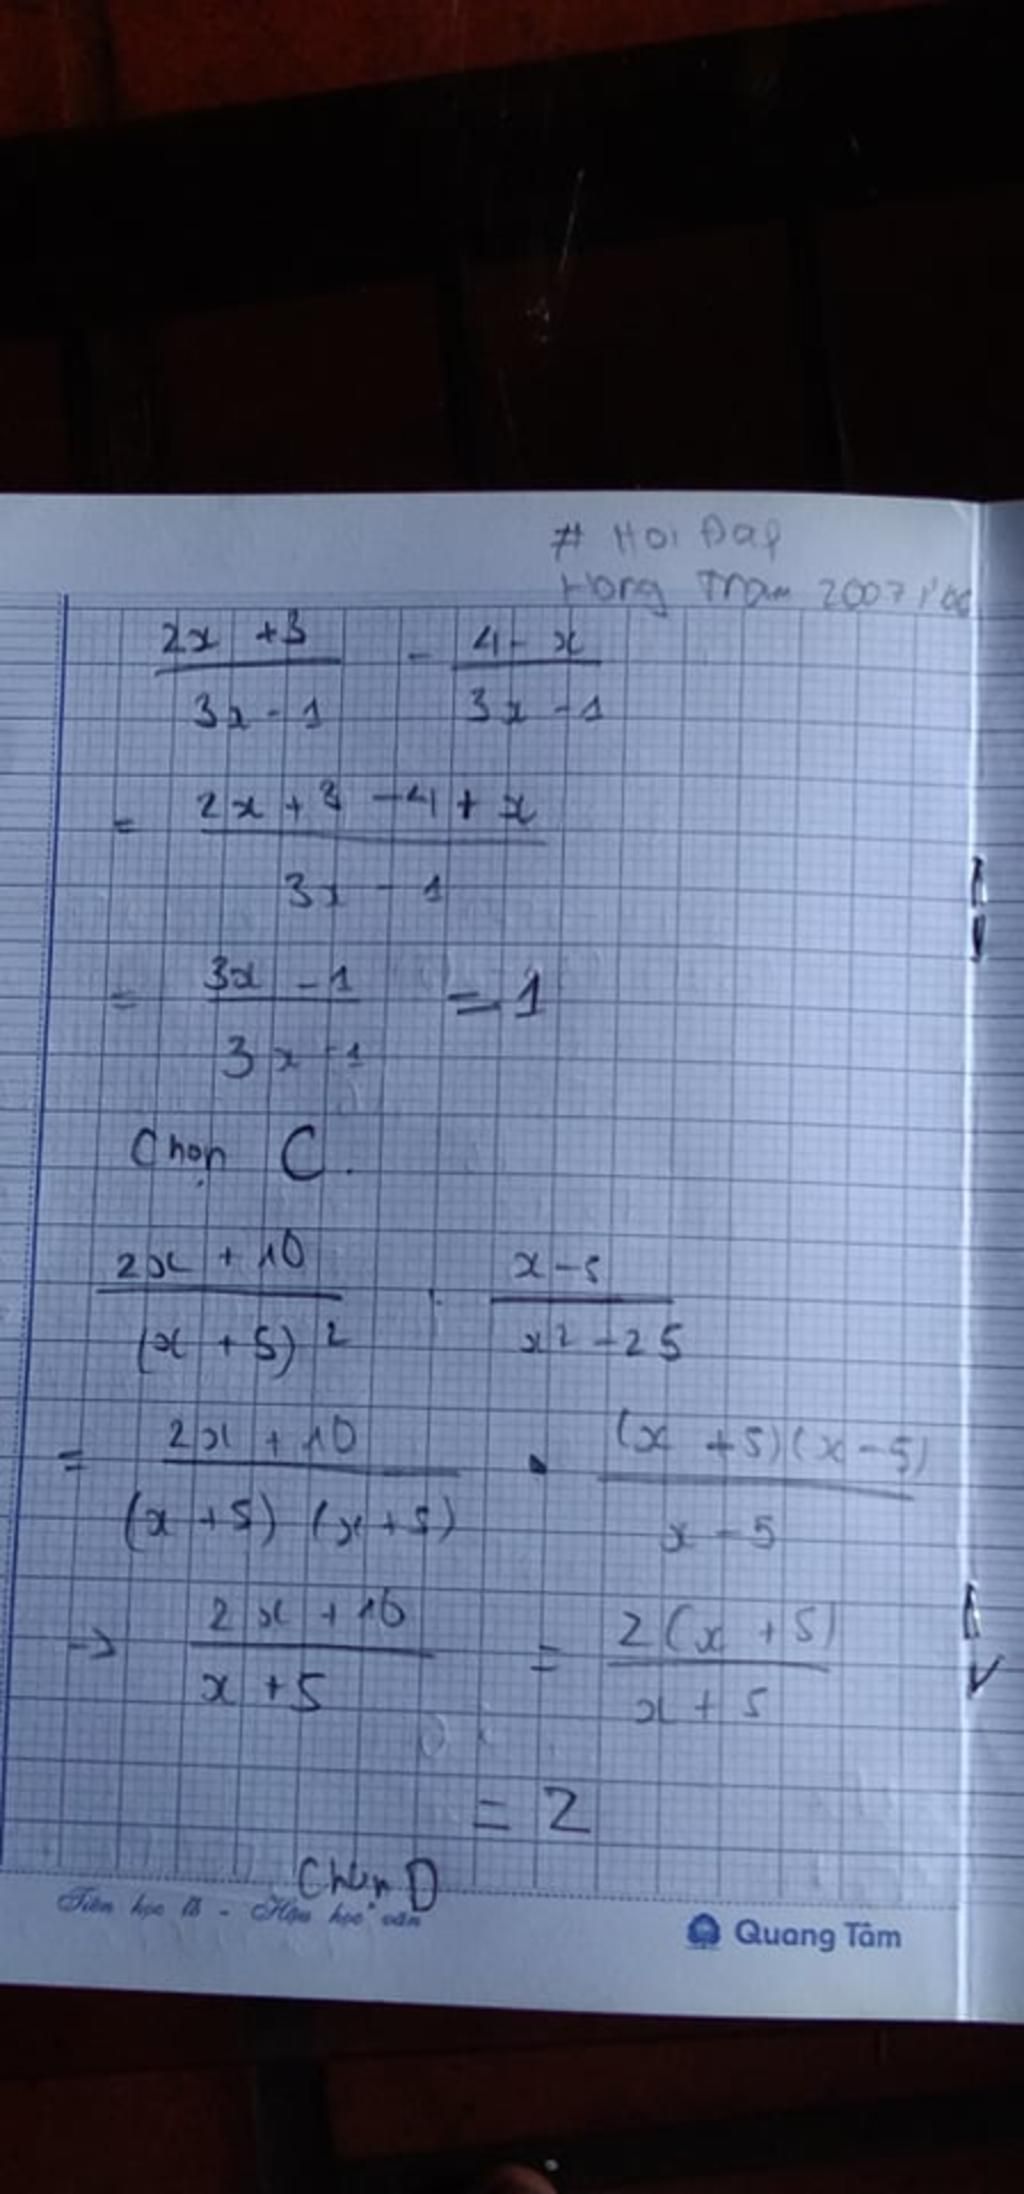 # Hoi Đap
Hong Tram 2007
2x + 3 / 3x - 1 - 4 - x / 3x - 1
= 2x + 3 - 4 + x / 3x - 1
= 3x - 1 / 3x - 1 = 1
Chọn C.
2x + 10 / (x + 5)² : x - 5 / x² - 25
= 2x + 10 / (x + 5) (x + 5) . (x + 5)(x - 5) / x - 5
→ 2x + 10 / x + 5 = 2(x + 5) / x + 5
= 2
Chọn D
Tiên học lễ - Hậu học văn
Quang Tâm